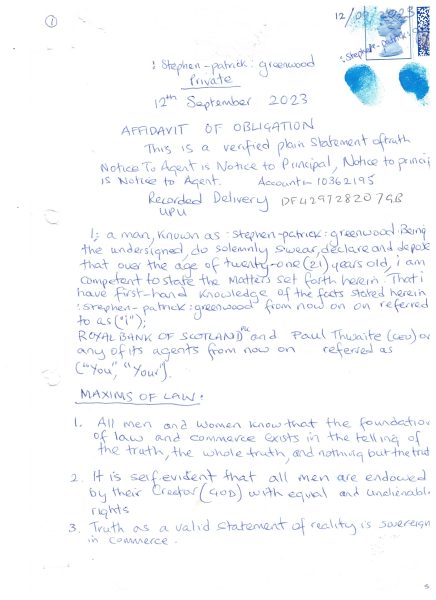 ①
12/09/2023
:Stephen-patrick:
:Stephen-patrick:greenwood
Private
12th September 2023
AFFIDAVIT OF OBLIGATION
This is a verified plain Statement of truth
Notice To Agent is Notice to Principal, Notice to princip
is Notice to Agent. Account:- 10362195
Recorded Delivery DF429728207GB
UPU
I; a man, known as :stephen-patrick:greenwood Being
the undersigned, do solemnly swear, declare and depose
that over the age of twenty-one (21) years old, i am
competent to state the matters set forth herein. That i
have first-hand knowledge of the facts stated herein
:stephen-patrick:greenwood from now on on referred
to as ("i");
ROYAL BANK OF SCOTLAND plc and Paul Thwaite (CEO) or
any of its agents from now on referred as
("You", "Your").
MAXIMS OF LAW:
1. All men and women know that the foundation
of law and commerce exists in the telling of
the truth, the whole truth, and nothing but the trut
2. It is self-evident that all men are endowed
by their Creator (GOD) with equal and unalienabl
rights
3. Truth as a valid statement of reality is sovereign
in commerce.